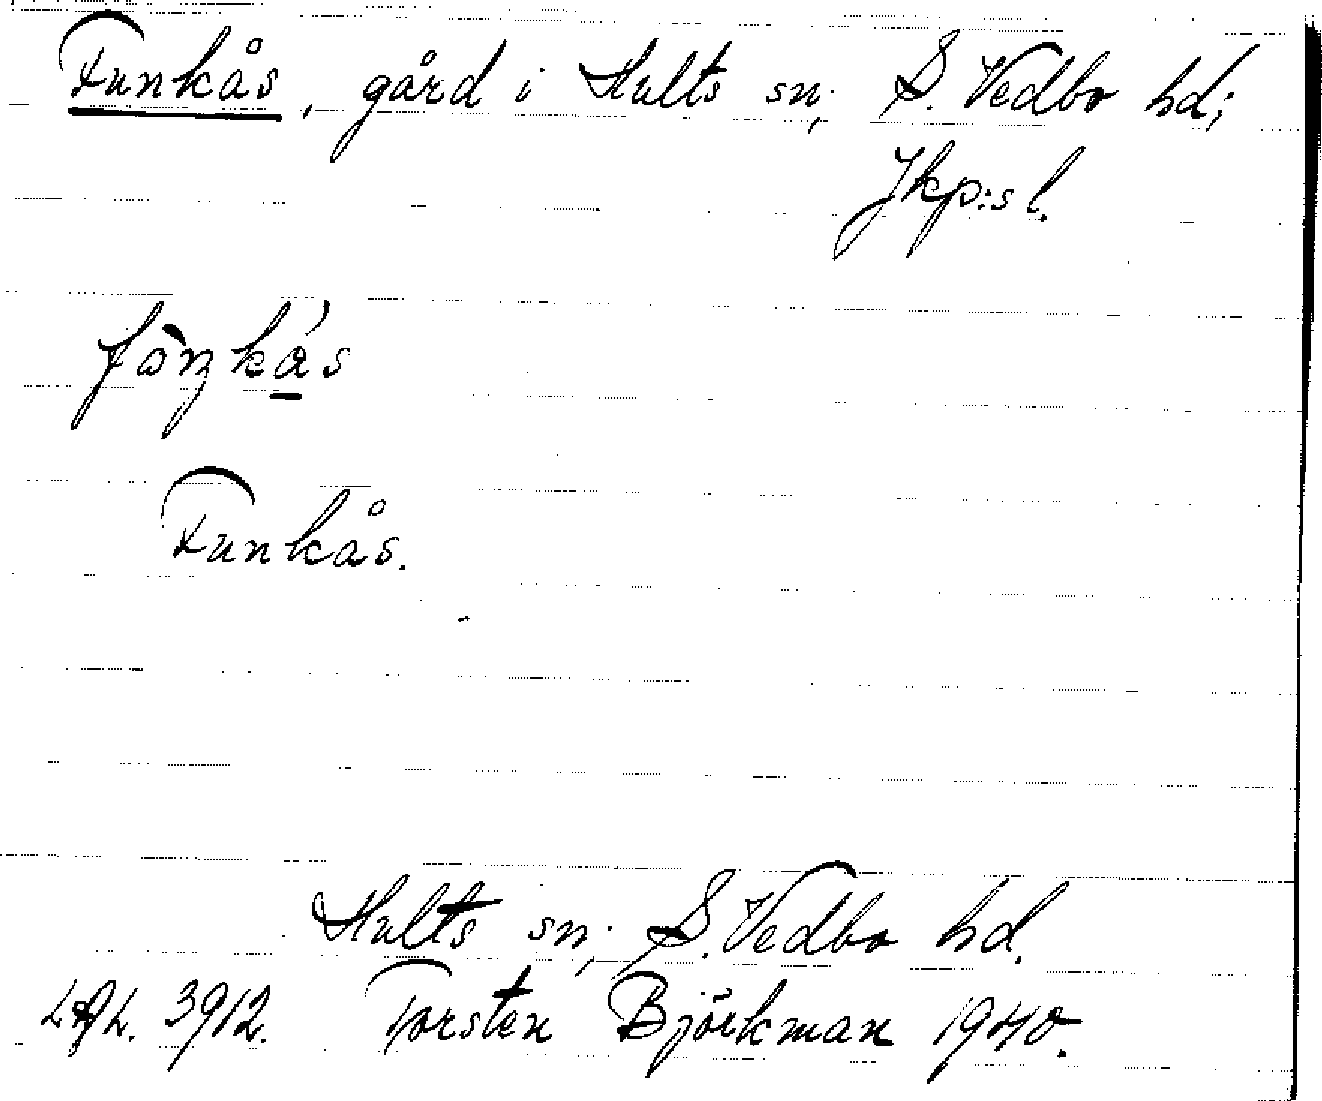 Funkås, gård i Hults sn; S. Vedbo hd;
Jkp:s l.
Funkås.
Hults sn; S. Vedbo hd.
3912. Torsten Björkman 1940.